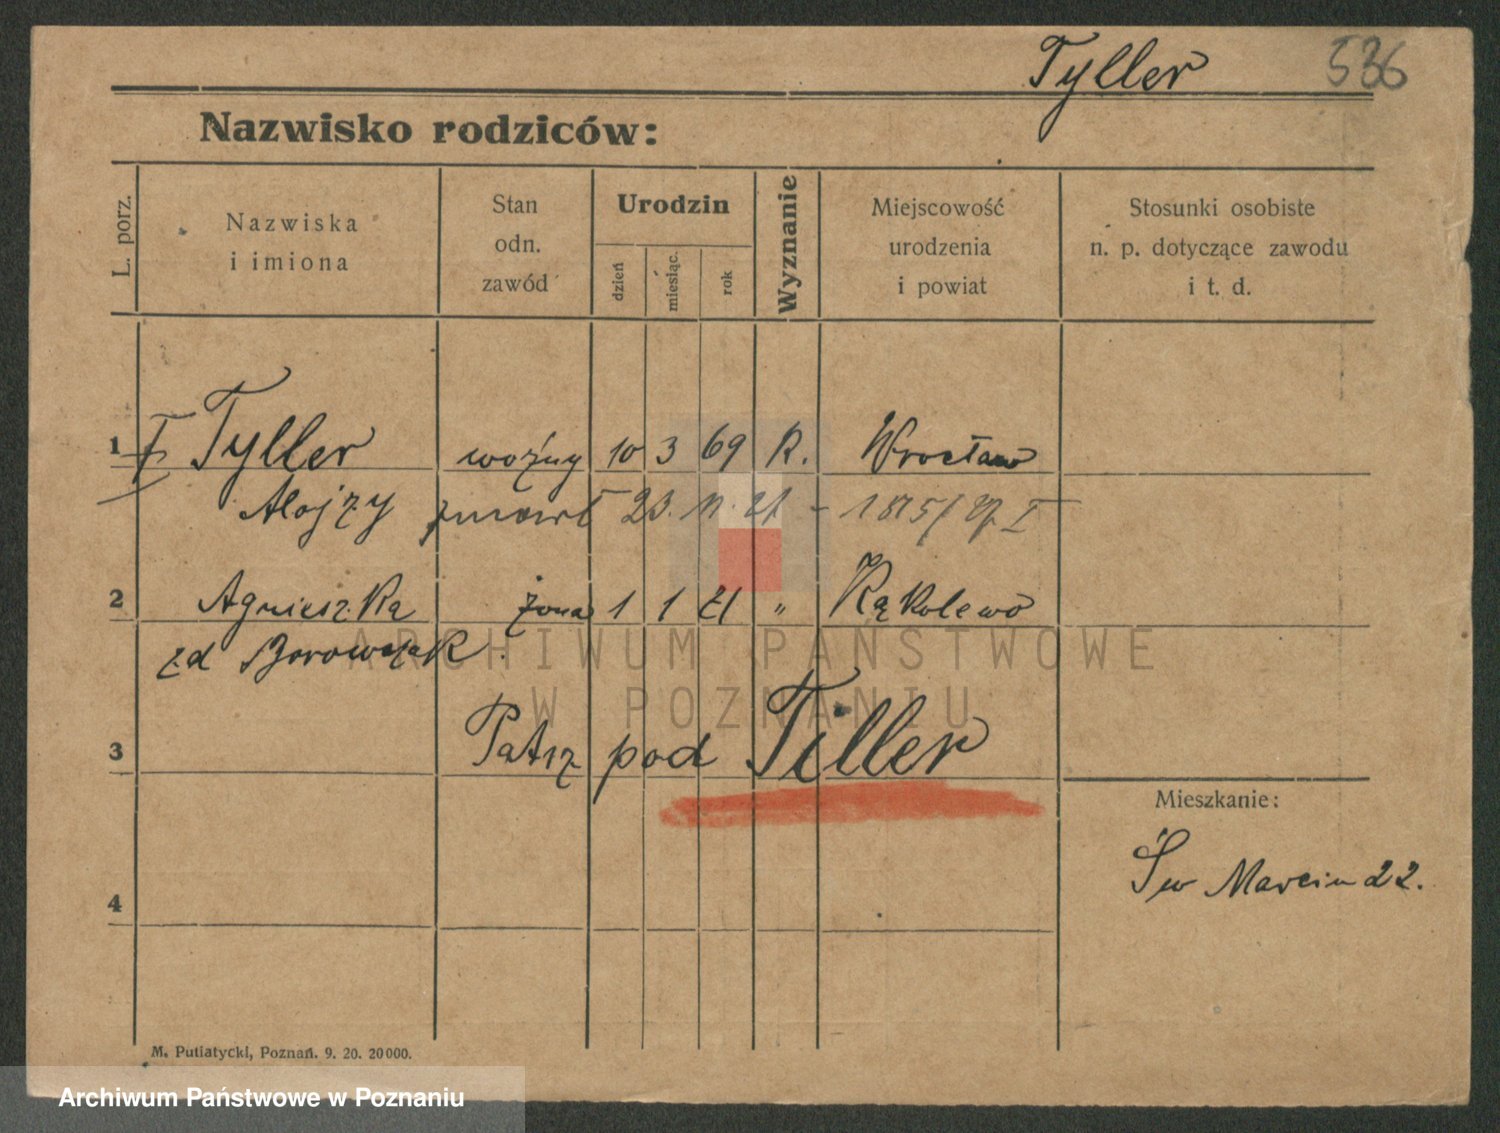 Tyller 536
Nazwisko rodziców:
L. porz.
Nazwiska
i imiona
Stan
odn.
zawód
Urodzin
dzień
miesiąc.
rok
Wyznanie
Miejscowość
urodzenia
i powiat
Stosunki osobiste
n. p. dotyczące zawodu
i t. d.
1 Tyller woźny 10 3 69 R. Wrocław
Alojzy zmarł 23. 11.
2 Agnieszka żona 1 1 71 " Rąkolewo
zd Borowczak.
3 Patrz pod Tiller
Mieszkanie:
Św Marcin 22.
4
M. Putiatycki, Poznań. 9. 20. 20000.
ARCHIWUM PAŃSTWOWE
W POZNANIU
Archiwum Państwowe w Poznaniu